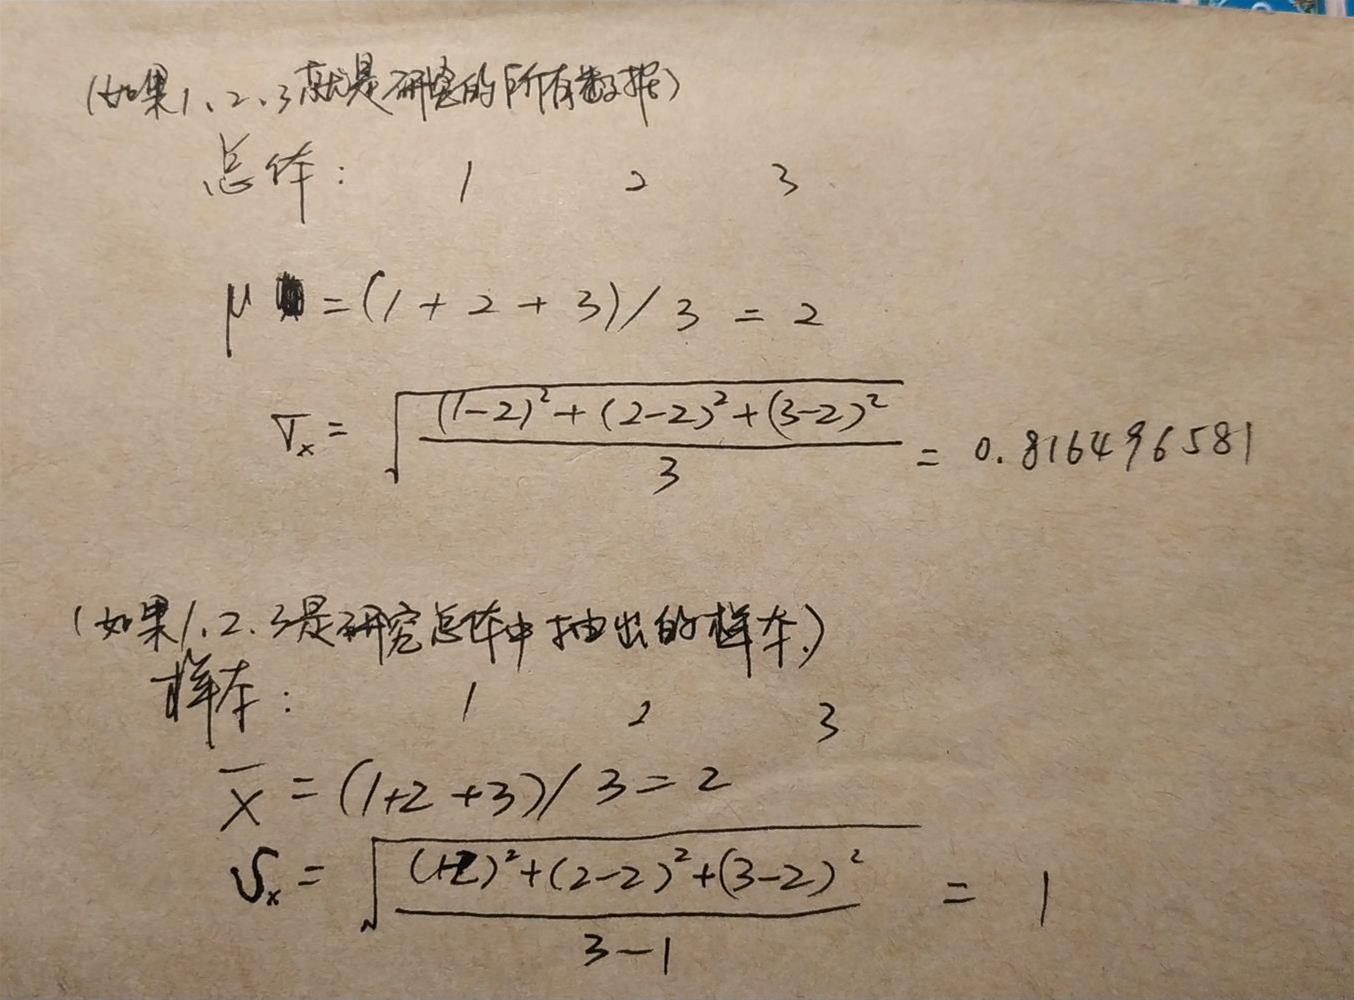 (如果1、2、3就是研究的所有数据)
总体: 1 2 3
μ = (1 + 2 + 3) / 3 = 2
σₓ = √((1-2)² + (2-2)² + (3-2)² / 3) = 0.816496581
(如果1、2、3是研究总体中抽出的样本.)
样本: 1 2 3
X̄ = (1+2+3) / 3 = 2
Sₓ = √((1-2)² + (2-2)² + (3-2)² / 3-1) = 1